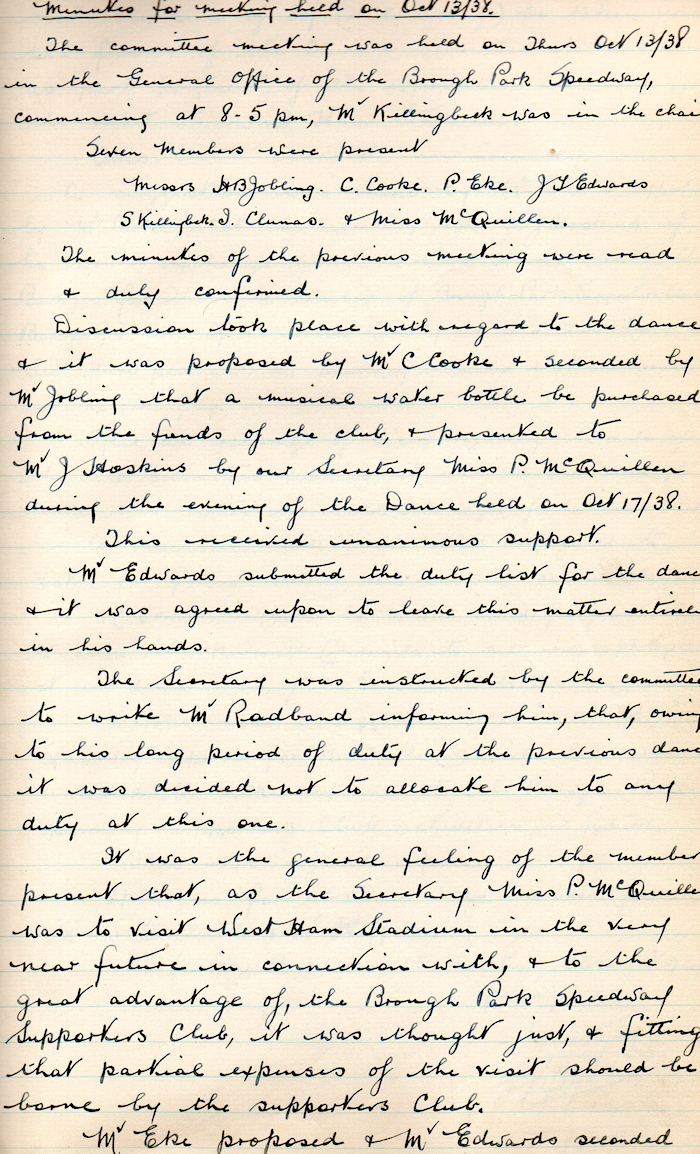 Minutes for meeting held on Oct 13/38.
The committee meeting was held on Thurs Oct 13/38
in the General Office of the Brough Park Speedway,
commencing at 8-5 pm, Mr Killingbeck was in the chai
Seven Members were present
Messrs H B Jobling. C. Cooke. P. Eke. J T Edwards
S Killingbeck. I. Clunas. & Miss McQuillen.
The minutes of the previous meeting were read
& duly confirmed.
Discussion took place with regard to the dance
& it was proposed by Mr C Cooke & seconded by
Mr Jobling that a musical water bottle be purchased
from the funds of the club, & presented to
Mr J Hoskins by our Secretary Miss P. McQuillen
during the evening of the Dance held on Oct 17/38.
This received unanimous support.
Mr Edwards submitted the duty list for the danc
& it was agreed upon to leave this matter entirel
in his hands.
The Secretary was instructed by the committee
to write Mr Radband informing him, that, owing
to his long period of duty at the previous danc
it was decided not to allocate him to any
duty at this one.
It was the general feeling of the member
present that, as the Secretary Miss P. McQuille
was to visit West Ham Stadium in the very
near future in connection with, & to the
great advantage of, the Brough Park Speedway
Supporters Club, it was thought just, & fitting
that partial expenses of the visit should be
borne by the supporters Club.
Mr Eke proposed & Mr Edwards seconded